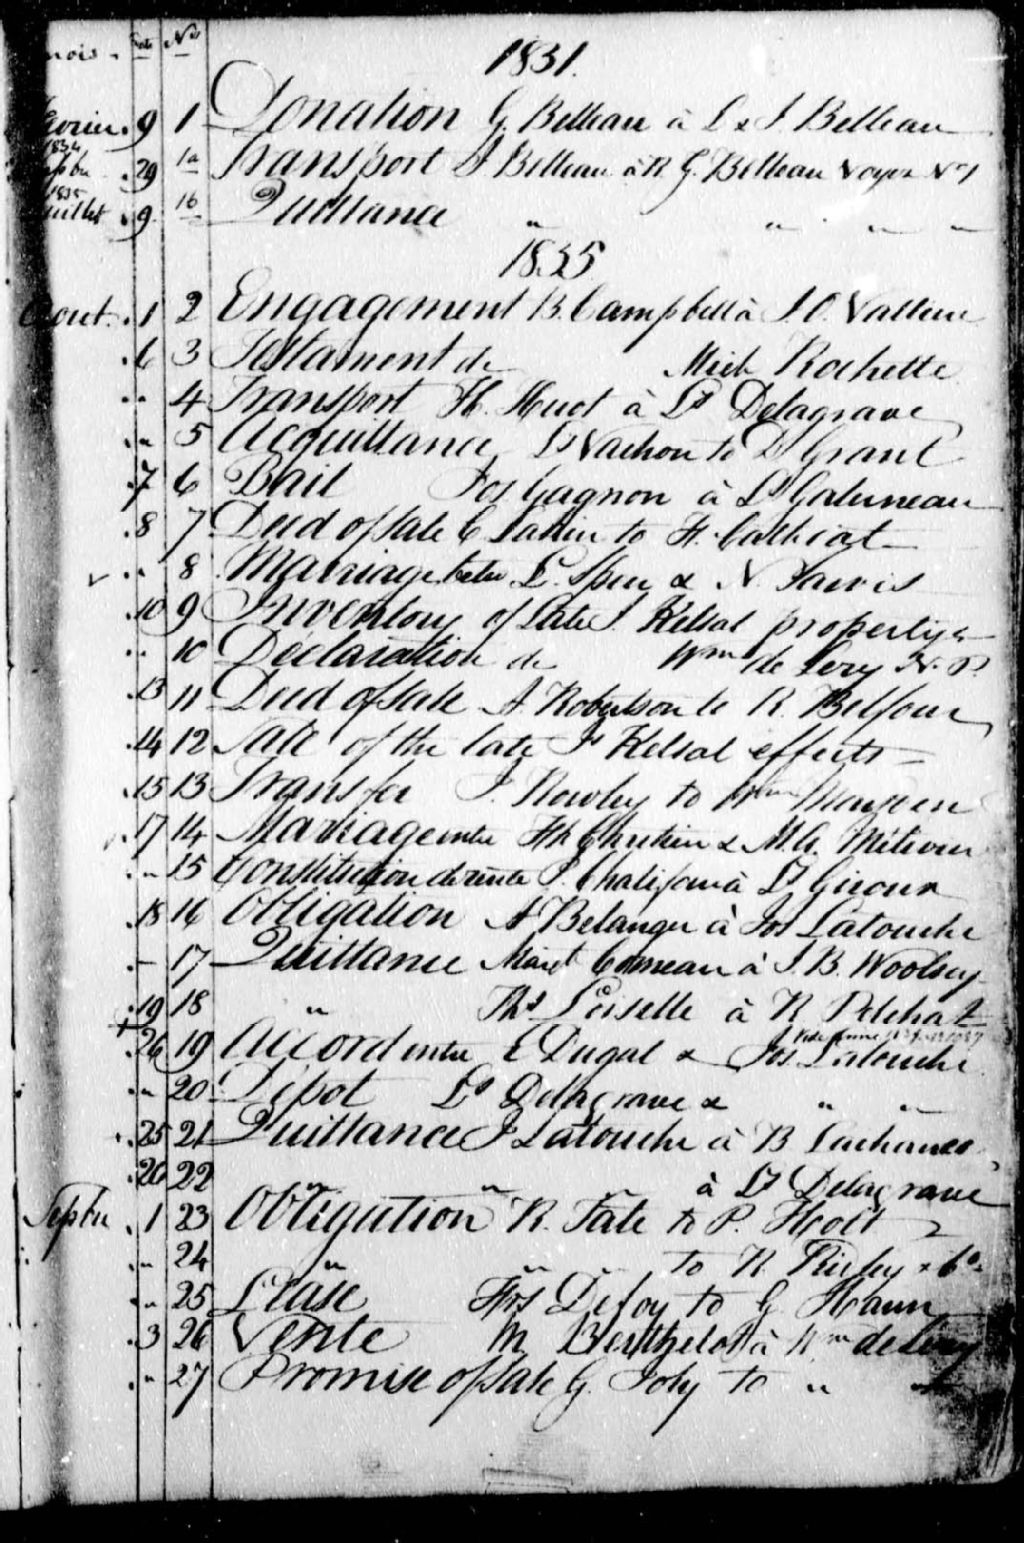 mois. Date Nos
1831.
février . 9 1 Donation G. Belleau à L & J. Belleau
1834
septbre . 29 1a Transport J Belleau à R. G. Belleau voyez No 1
1835
juillet . 9 1b Quittance " " " "
1835
Aout . 1 2 Engagement B. Campbell à J. O. Vallieu
. 6 3 Testament de Mich Rochette
. " 4 Transport H. Huot à Ls Delagrave
. " 5 Acquittance Ls Vachon to D Grant
. 7 6 Bail Jos Gagnon à Ls Gaterneau
. 8 7 Deed of sale C to H.
. " 8 Marriage betw L. & N. Jarvis
. 10 9 Inventory of late J. Kelsal property &
. " 10 Déclaration de Wm de Lery N. P.
. 13 11 Deed of sale A. Robertson to R. Belfour
. 14 12 Sale of the late Js Kelsal effects
. 15 13 Transfer J. Rowley to Wm
. 17 14 Mariage entre Fk Chretien & M. A. Métivier
. " 15 Constitution de rente P. Chalifour à Ls Giroux
. 18 16 Obligation A Belanger à Jos Latouche
. " 17 Quittance Margt Comeau à J. B. Woolsey
. 19 18 " Ths Loiselle à R Pelchat
. 26 19 Accord entre E Dugal & Jos Latouche
. " 20 Dépot Ls Delagrave & " "
. 25 21 Quittance J Latouche à B Lachance
. 26 22 " " " à Ls Delagrave
Septbre . 1 23 Obligation R. Tate to P. Holt
. " 24 " " " to R. & Co.
. " 25 Lease Frs Defoy to G. Hann
. 3 26 Vente M Berthelot à Wm de Lery
. " 27 Promise of sale G. Joly to " "